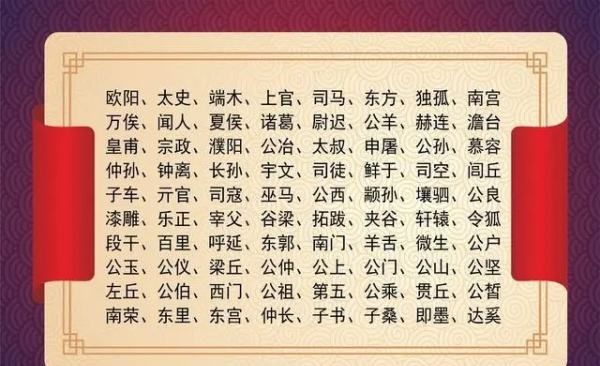 欧阳、太史、端木、上官、司马、东方、独孤、南宫
万俟、闻人、夏侯、诸葛、尉迟、公羊、赫连、澹台
皇甫、宗政、濮阳、公冶、太叔、申屠、公孙、慕容
仲孙、钟离、长孙、宇文、司徒、鲜于、司空、闾丘
子车、亓官、司寇、巫马、公西、颛孙、壤驷、公良
漆雕、乐正、宰父、谷梁、拓跋、夹谷、轩辕、令狐
段干、百里、呼延、东郭、南门、羊舌、微生、公户
公玉、公仪、梁丘、公仲、公上、公门、公山、公坚
左丘、公伯、西门、公祖、第五、公乘、贯丘、公皙
南荣、东里、东宫、仲长、子书、子桑、即墨、达奚